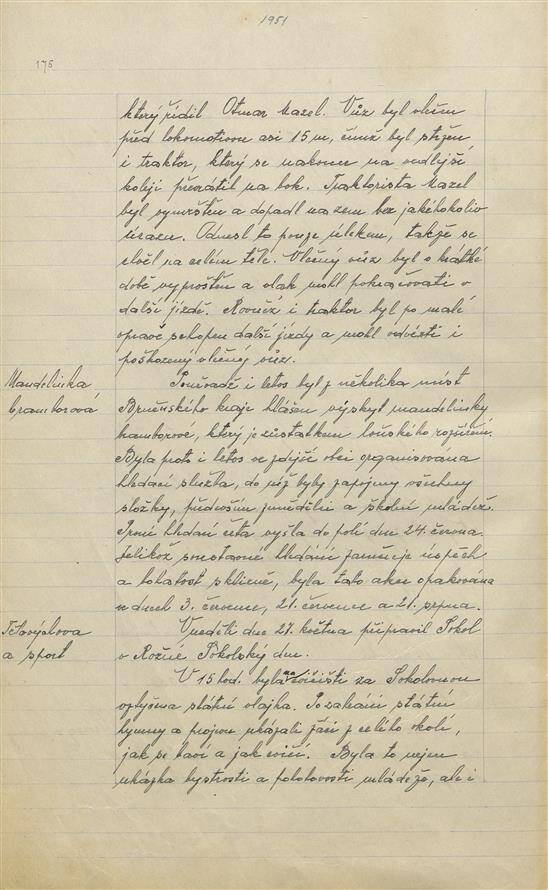 1951
175
který řídil Otmar Mazel. Vůz byl vlečen
před lokomotivou asi 15 m, čímž byl stržen
i traktor, který se nakonec na vedlejší
koleji převrátil na bok. Traktorista Mazel
byl vymrštěn a dopadl na zem bez jakéhokoliv
úrazu. Odnesl to pouze úlekem, takže se
třásl na celém těle. Vlečný vůz byl v krátké
době vyproštěn a vlak mohl pokračovati v
další jízdě. Rovněž i traktor byl po malé
opravě schopen další jízdy a mohl odvésti i
poškozený vlečný vůz.
Mandelinka
bramborová
Poněvadž i letos byl z několika míst
Brněnského kraje hlášen výskyt mandelinky
bramborové, který je zůstatkem loňského rozšíření.
Byla proto i letos ve zdejší obci organisována
hledací služba, do níž byly zapojeny všechny
složky, především zemědělci a školní mládež.
První hledací četa vyšla do polí dne 24. června.
Jelikož soustavné hledání zaručuje úspěch
a bohatost sklizně, byla tato akce opakována
ve dnech 3. července, 21. července a 21. srpna.
Tělovýchova
a sport
V neděli dne 27. května připravil Sokol
v Rožné Sokolský den.
V 15 hod. byla na cvičišti za Sokolovnou
vztyčena státní vlajka. Po zahrání státní
hymny a projevu ukázali žáci z celého okolí,
jak se baví a jak cvičí. Byla to nejen
ukázka bystrosti a pohotovosti mládeže, ale i